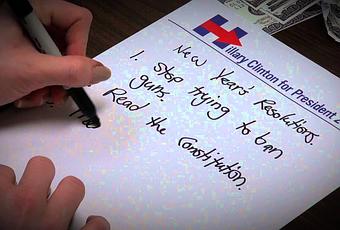 Hillary Clinton for President
New Year's Resolutions.
1. Stop trying to ban
guns.
Read the Constitution.
The